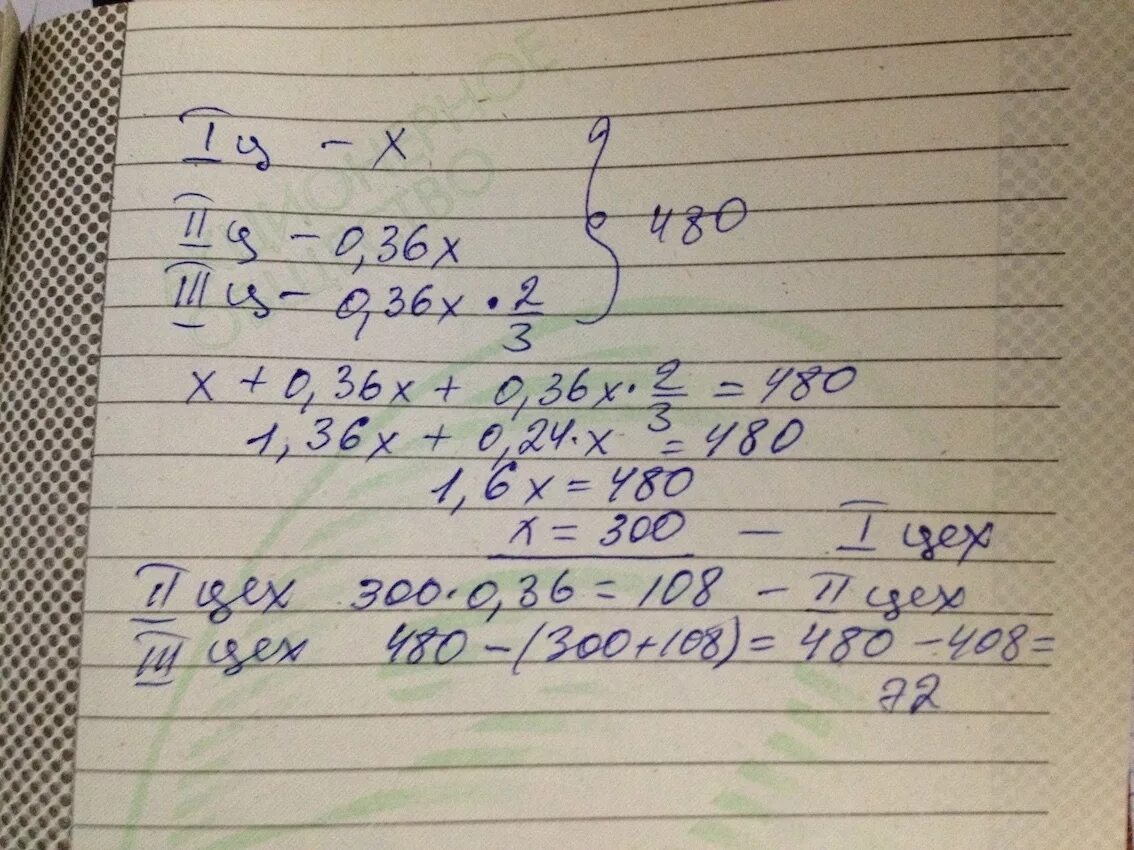 I ц - x
II ц - 0,36x
III ц - 0,36x · 2/3
480
x + 0,36x + 0,36x · 2/3 = 480
1,36x + 0,24 · x = 480
1,6x = 480
x = 300 - I цех
II цех 300 · 0,36 = 108 - II цех
III цех 480 - (300 + 108) = 480 - 408 =
72